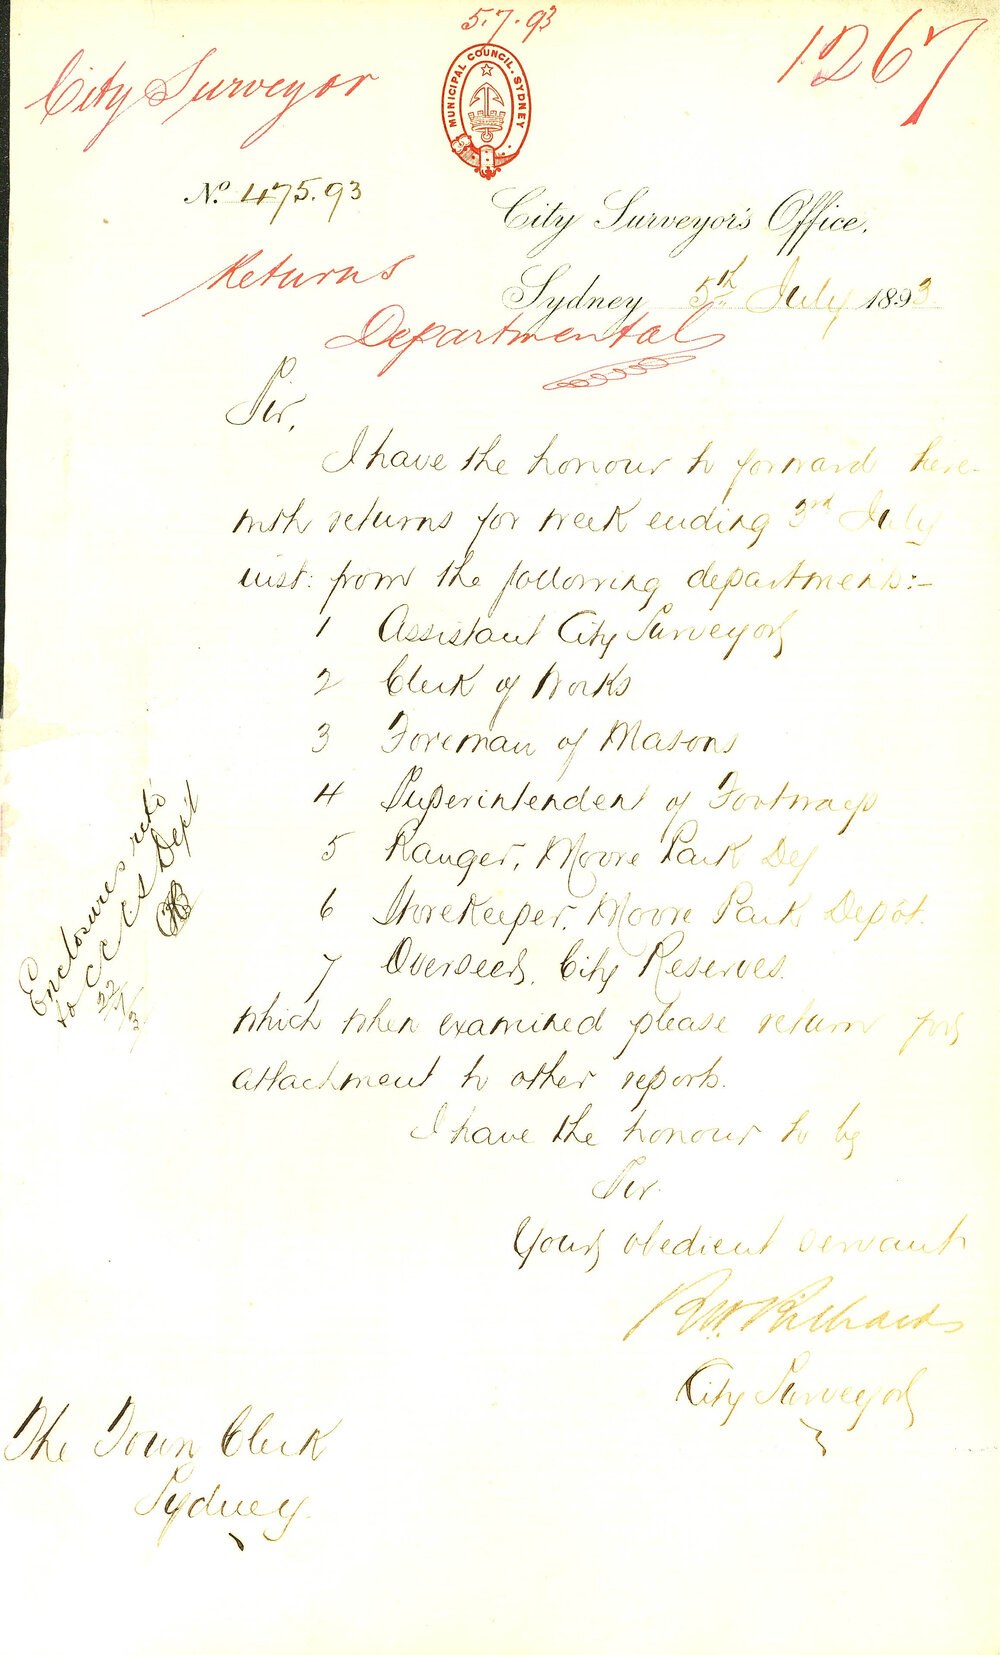 5.7.93
1267
City Surveyor
MUNICIPAL COUNCIL. SYDNEY
No. 475.93
City Surveyor's Office.
Returns
Sydney 5th July 1893
Departmental
Sir,
I have the honour to forward here-
with returns for week ending 3rd July
inst: from the following departments:-
1 Assistant City Surveyor
2 Clerk of Works
3 Foreman of Masons
4 Superintendent of Footways
5 Ranger, Moore Park
6 Storekeeper, Moore Park Depôt.
7 Overseer, City Reserves.
which when examined please return for
attachment to other reports.
I have the honour to be
Sir.
Your obedient servant
R.W. Richards
City Surveyor
The Town Clerk
Sydney.
Enclosures
to CCCS Dept